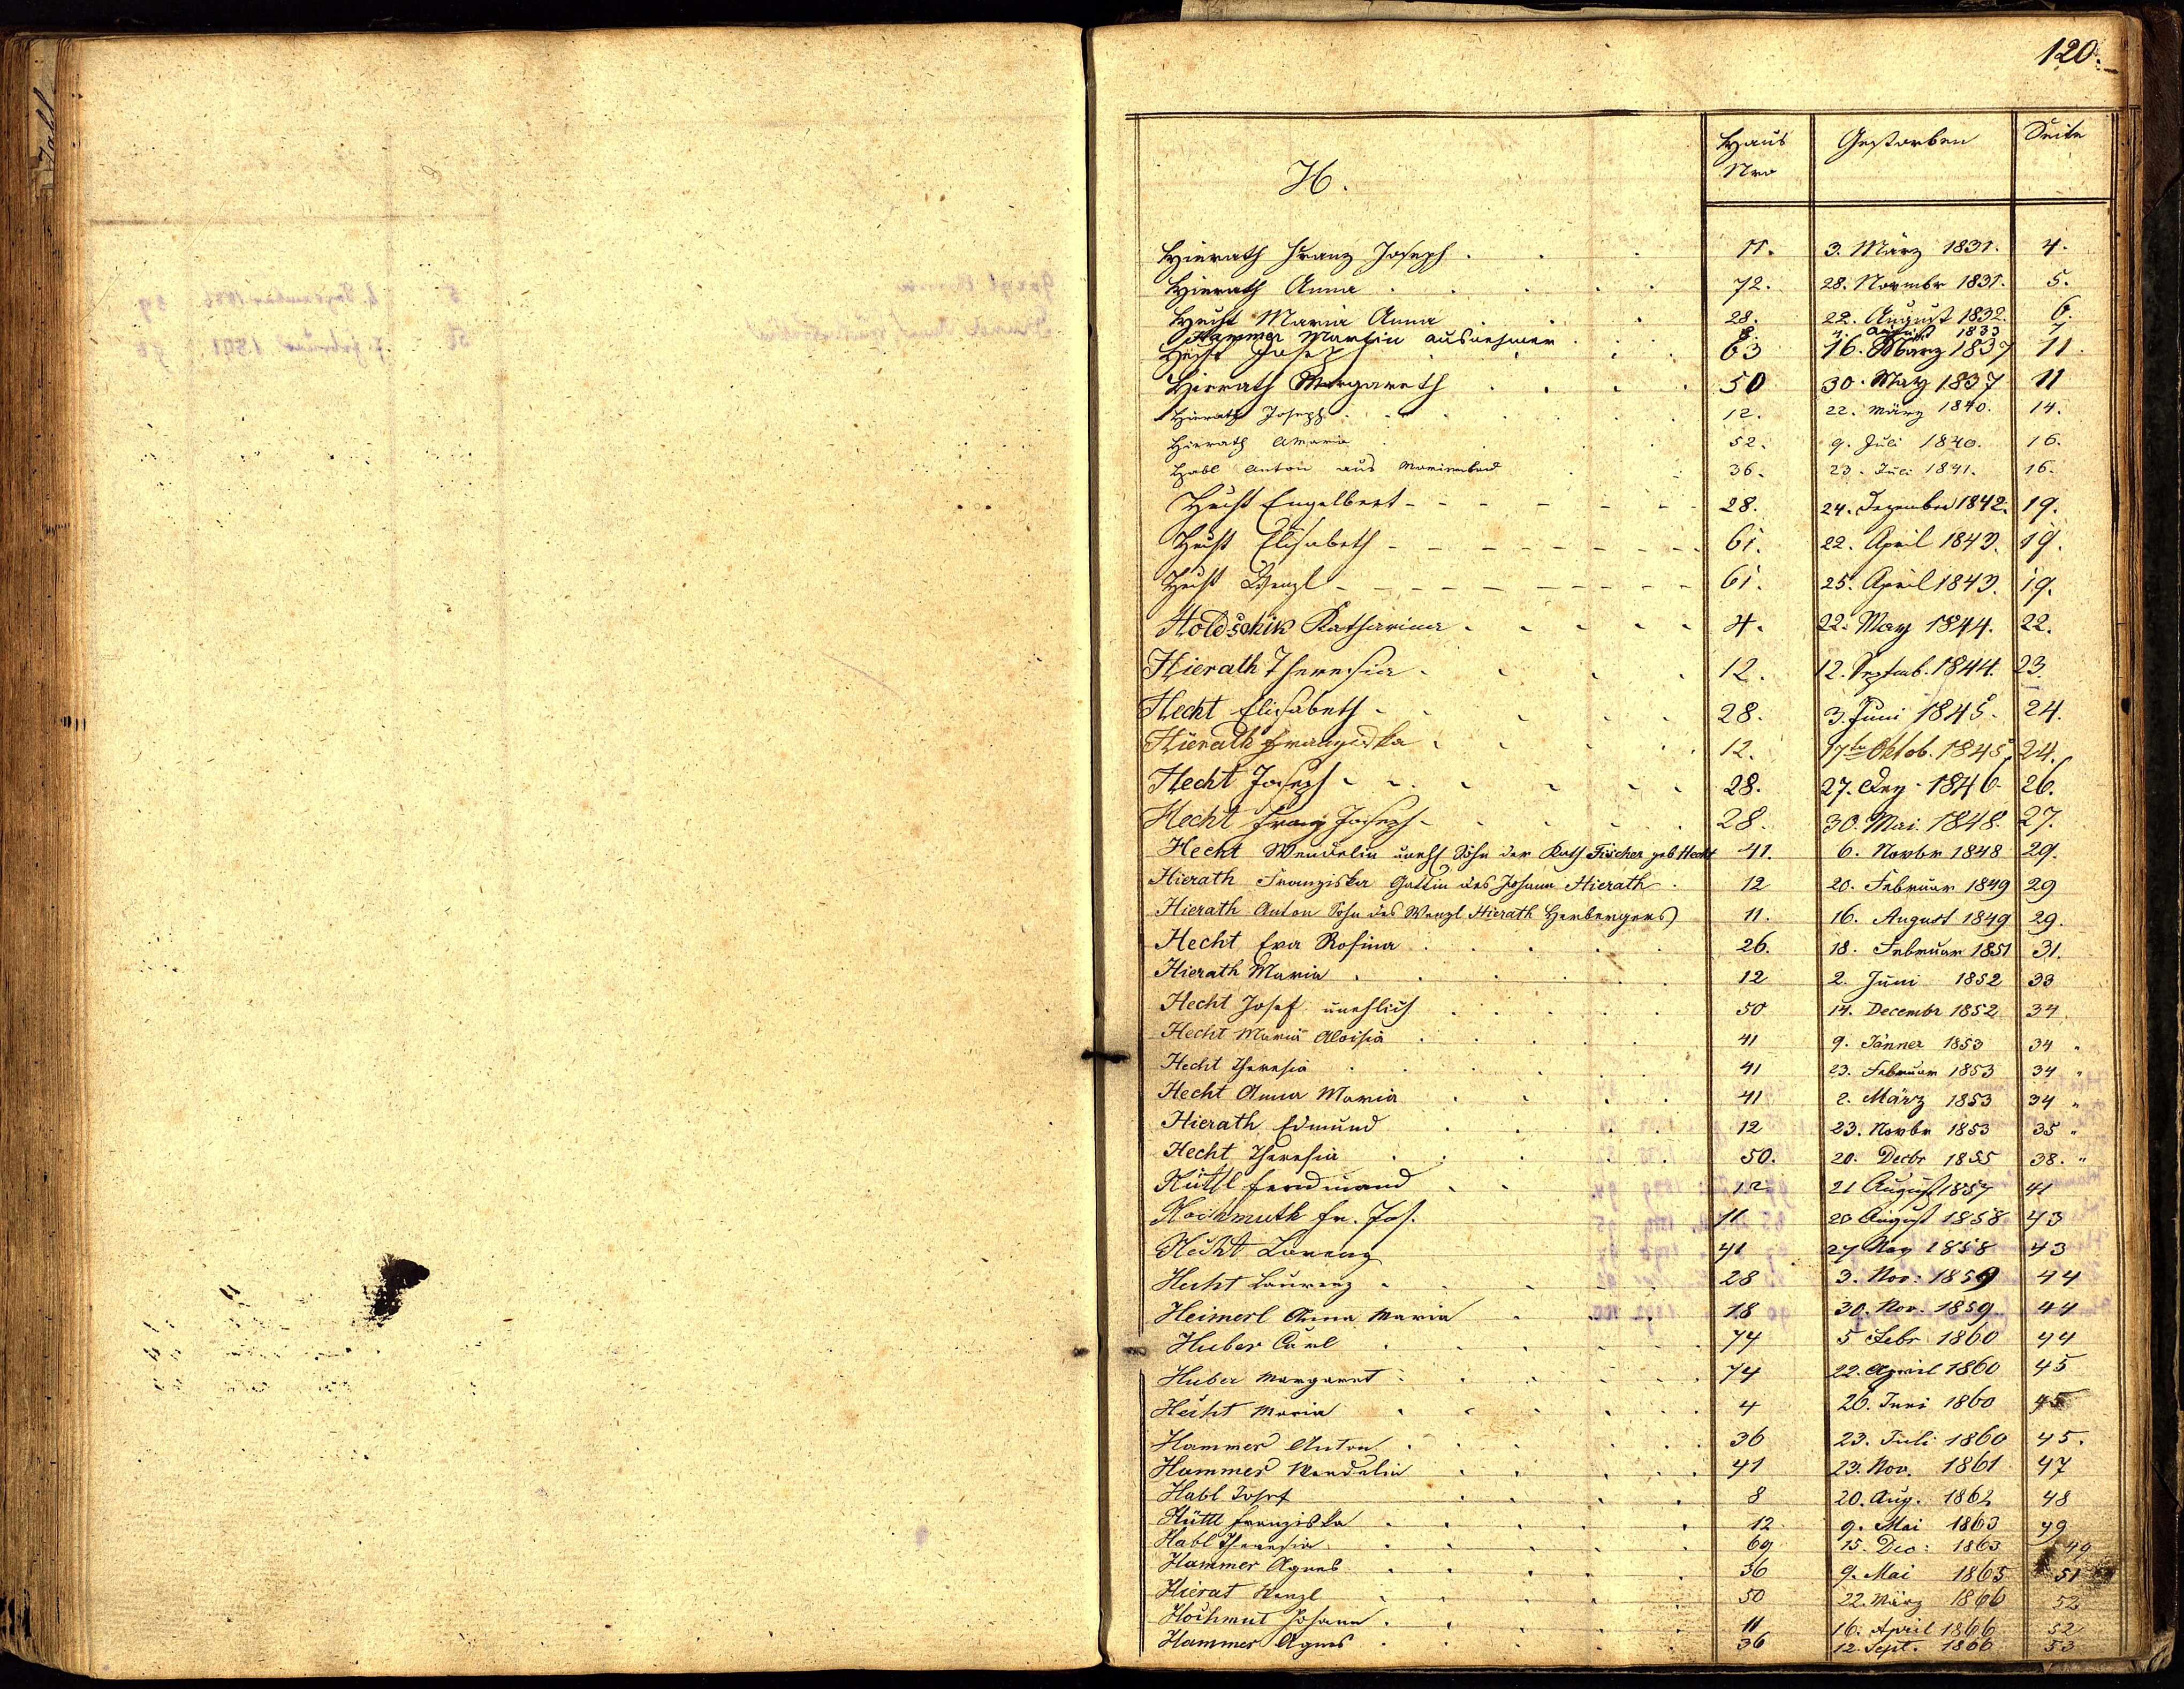 120.
H.
Haus Nro
Gestorben
Seite
Hierath Franz Joseph 11. 3. März 1831. 4.
Hierath Anna 72. 28. Novmbr 1831. 5.
Hecht Maria Anna 28. 22. August 1832. 6.
Hammer Martin ausnehmer 8. 4. August 1833 7
Hecht Josep 63 16. März 1837 11.
Hierath Margareth 50 30. May 1837 11
Hierath Joseph 12. 22. März 1840. 14.
Hierath Maria 52. 9. Juli 1840. 16.
Habl Anton aus Marienbad 36. 23. Juli 1841. 16.
Hecht Engelbert 28. 24. Dezember 1842. 19.
Hecht Elisabeth 61. 22. April 1843. 19.
Hecht Wenzl 61. 25. April 1843. 19.
Holdschik Katharina 4. 22. May 1844. 22.
Hierath Theresia 12. 12. Septemb. 1844. 23.
Hecht Elisabeth 28. 3. Juni 1845. 24.
Hierath Franziska 12. 17te Oktob. 1845. 24.
Hecht Joseph 28. 27. Dez. 1846. 26.
Hecht Franz Joseph 28. 30. Mai 1848. 27.
Hecht Wendelin unehl Sohn der Kath Fischer geb Hecht 41. 6. Novbr 1848 29.
Hierath Franziska Gattin des Johann Hierath 12 20. Februar 1849 29
Hierath Anton Sohn des Wenzl Hierath Herbergers 11. 16. August 1849 29.
Hecht Eva Rosina 26. 18. Februar 1851 31.
Hierath Maria 12 2. Juni 1852 33
Hecht Josef unehlich 50 14. Decembr 1852 34
Hecht Maria Aloisia 41 9. Jänner 1853 34 "
Hecht Theresia 41 23. Februar 1853 34 "
Hecht Anna Maria 41 2. März 1853 34 "
Hierath Edmund 12 23. Novbr 1853 35 "
Hecht Theresia 50. 20. Decbr 1855 38. "
Hüttl Ferdinand 12 21 August 1857 41
Hochmuth Fr. Jos. 11 20 August 1858 43
Hecht Lorenz 41 27 Nov 1858 43
Hecht Laurenz 28 3. Nov: 1859 44
Heimerl Anna Maria 18 30. Nov. 1859 44
Huber Carl 74 5 Febr 1860 44
Huber Margaret 74 22. April 1860 45
Hecht Maria 4 26. Juni 1860 45
Hammer Anton 36 23. Juli 1860 45.
Hammer Wendelin 41 23. Nov. 1861 47
Habl Josef 8 20. Aug. 1862 48
Hüttl Franziska 12 9. Mai 1863 49
Habl Theresia 69 15. Dec: 1863 49
Hammer Agnes 36 9. Mai 1865 51
Hierat Wenzl 50 22. März 1866 52
Hochmut Johann 11 16. April 1866 52
Hammer Agnes 36 12. Sept. 1866 53